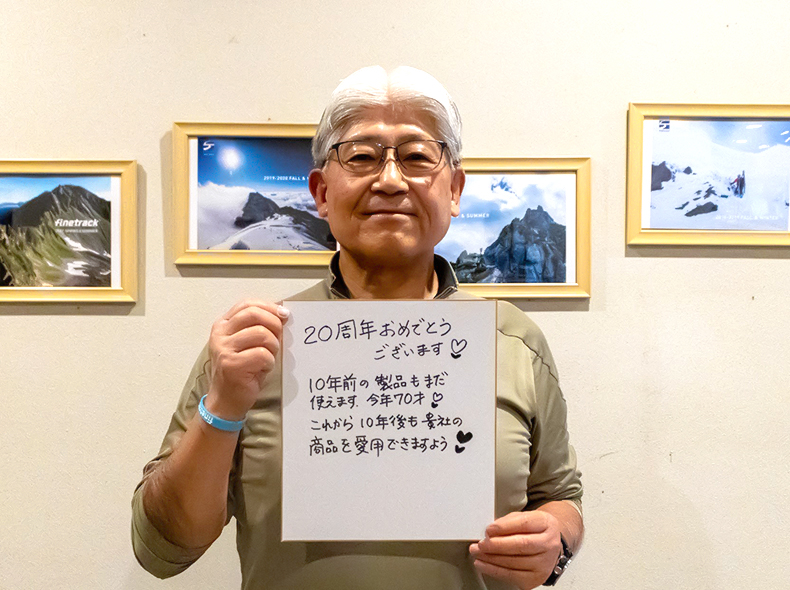 finetrack
2019-2020 FALL &
& SUMMER
20周年おめでとう
ございます♡
10年前の製品もまだ
使えます。今年70才♡
これから10年後も貴社の
商品を愛用できますよう♥